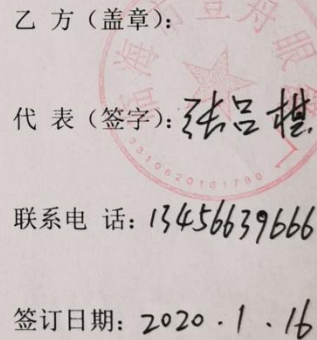 乙 方（盖章）：
代 表（签字）：张吕棋
联系电 话：13456639666
签订日期：2020.1.16